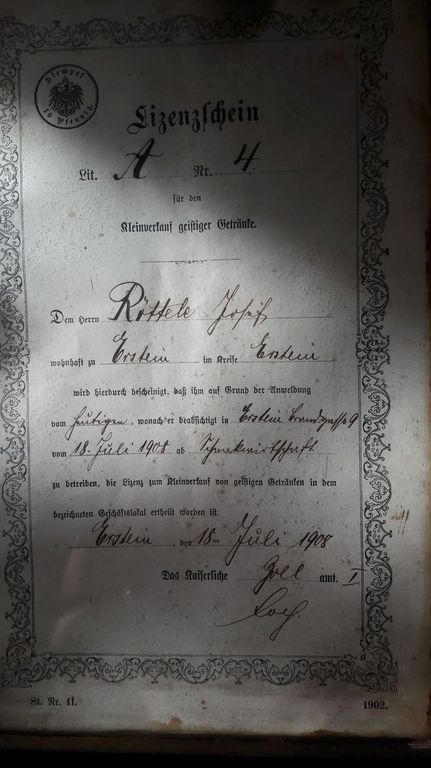 Stempel
10 Pfennig.
Lizenzschein
Lit. A Nr. 4.
für den
Kleinverkauf geistiger Getränke.
Dem Herrn Röttele Josef
wohnhaft zu Erstein im Kreise Erstein
wird hierdurch bescheinigt, daß ihm auf Grund der Anmeldung
vom heutigen, wonach er beabsichtigt in Erstein Brandgasse 9
vom 18. Juli 1908 ab Schankwirtschaft
zu betreiben, die Lizenz zum Kleinverkauf von geistigen Getränken in dem
bezeichneten Geschäftslokal erteilt worden ist.
Erstein, den 18. Juli 1908
Das Kaiserliche Zoll amt. I
St. Nr. 11. 1902.